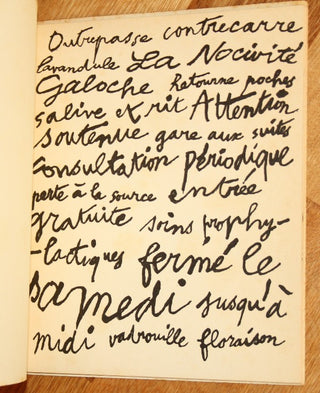 Outrepasse contrecarre
lavandule La Nocivité
Galoche Retourne poches
salive et rit Attention
soutenue gare aux suites
consultation périodique
perte à la source entrée
gratuite soins prophy-
-lactiques fermé le
samedi jusqu'à
midi vadrouille floraison